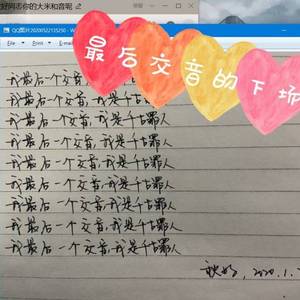 好同志你的大米和音呢
QQ图片20200522135250
最后交音的下场
我最后一个交音
我最后一个交音,我是千古
我最后一个交音,我是千古罪人
我最后一个交音,我是千古罪人
我最后一个交音,我是千古罪人
我最后一个交音,我是千古罪人
我最后一个交音,我是千古罪人
我最后一个交音,我是千古罪人
我最后一个交音,我是千古罪人
2020.1.